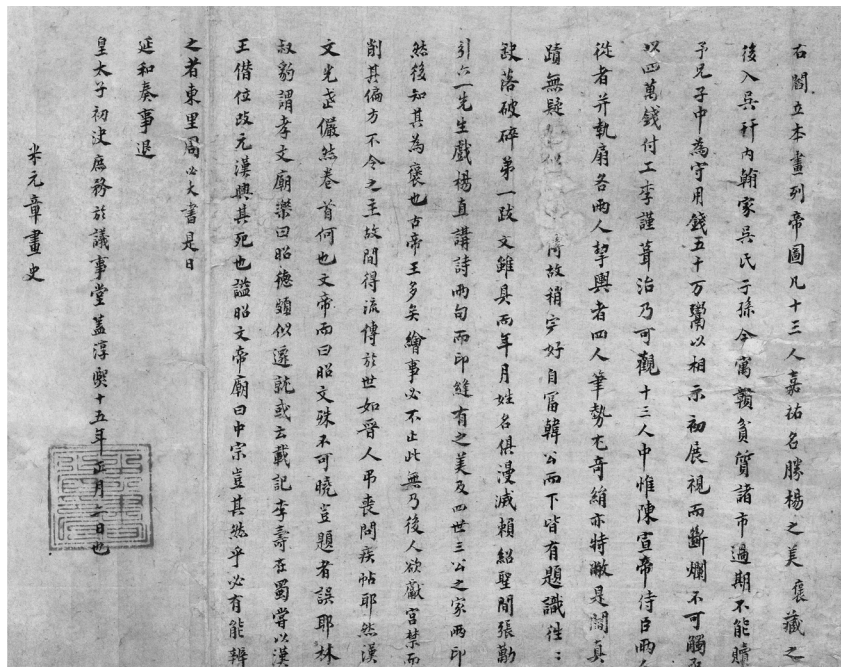 右閻立本畫列帝圖凡十三人嘉祐名勝楊之美褒藏之
後入吳幵內翰家吳氏子孫今寓贛貧質諸市過期不能贖
予兄子中為守用錢五十万鬻以相示初展視而斷爛不可觸
以四萬錢付工李謹葺治乃可觀十三人中惟陳宣帝侍臣兩人
從者并執扇各兩人挈輿者四人筆勢尤奇絹亦特敝是閻真
蹟無疑 故稍完好自富韓公而下皆有題識往:
缺落破碎第一跋文雖具而年月姓名俱漫滅賴紹聖間張勱
引六一先生戲楊直講詩兩句而印縫有之美及四世三公之家兩印
然後知其為褒也古帝王多矣繪事必不止此無乃後人欲獻宮禁而
削其偏方不令之主故間得流傳於世如晉人弔喪問疾帖耶然漢
文光武儼然卷首何也文帝而曰昭文殊不可曉豈題者誤耶林
叔豹謂孝文廟樂曰昭德頗似遷就或云載記李壽在蜀嘗以漢
王僭位改元漢興其死也謚昭文帝廟曰中宗豈其然乎必有能辨
之者東里周必大書是日
延和奏事退
皇太子初決庶務於議事堂蓋淳熙十五年正月二日也
米元章畫史